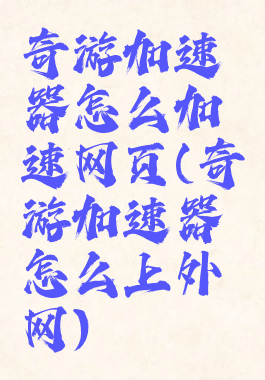 奇游加速
器怎么加
速网页(奇
游加速器
怎么上外
网)